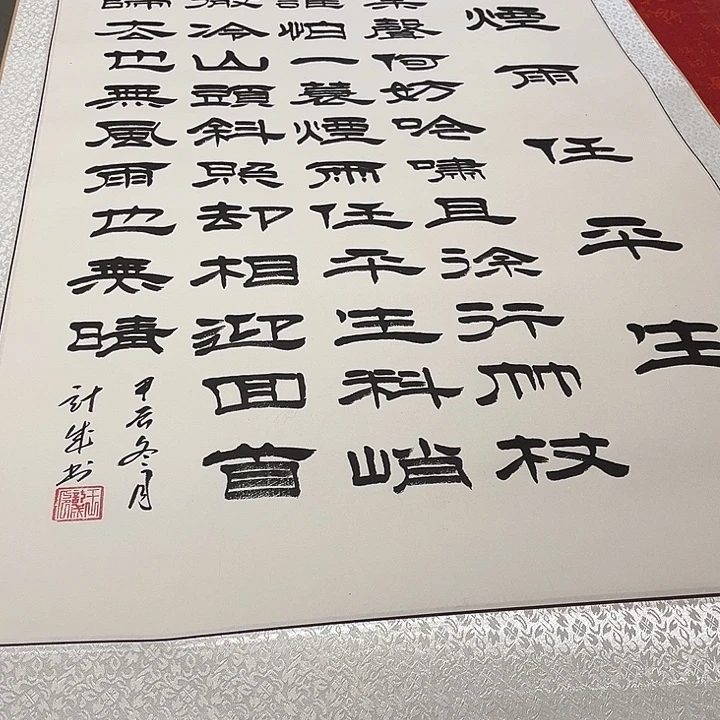 煙雨任平生
聲何妨吟嘯且徐行竹杖
誰怕一蓑煙雨任平生科峭
微冷山頭斜照却相迎回首
歸去也無風雨也無晴
甲辰冬月
計成书